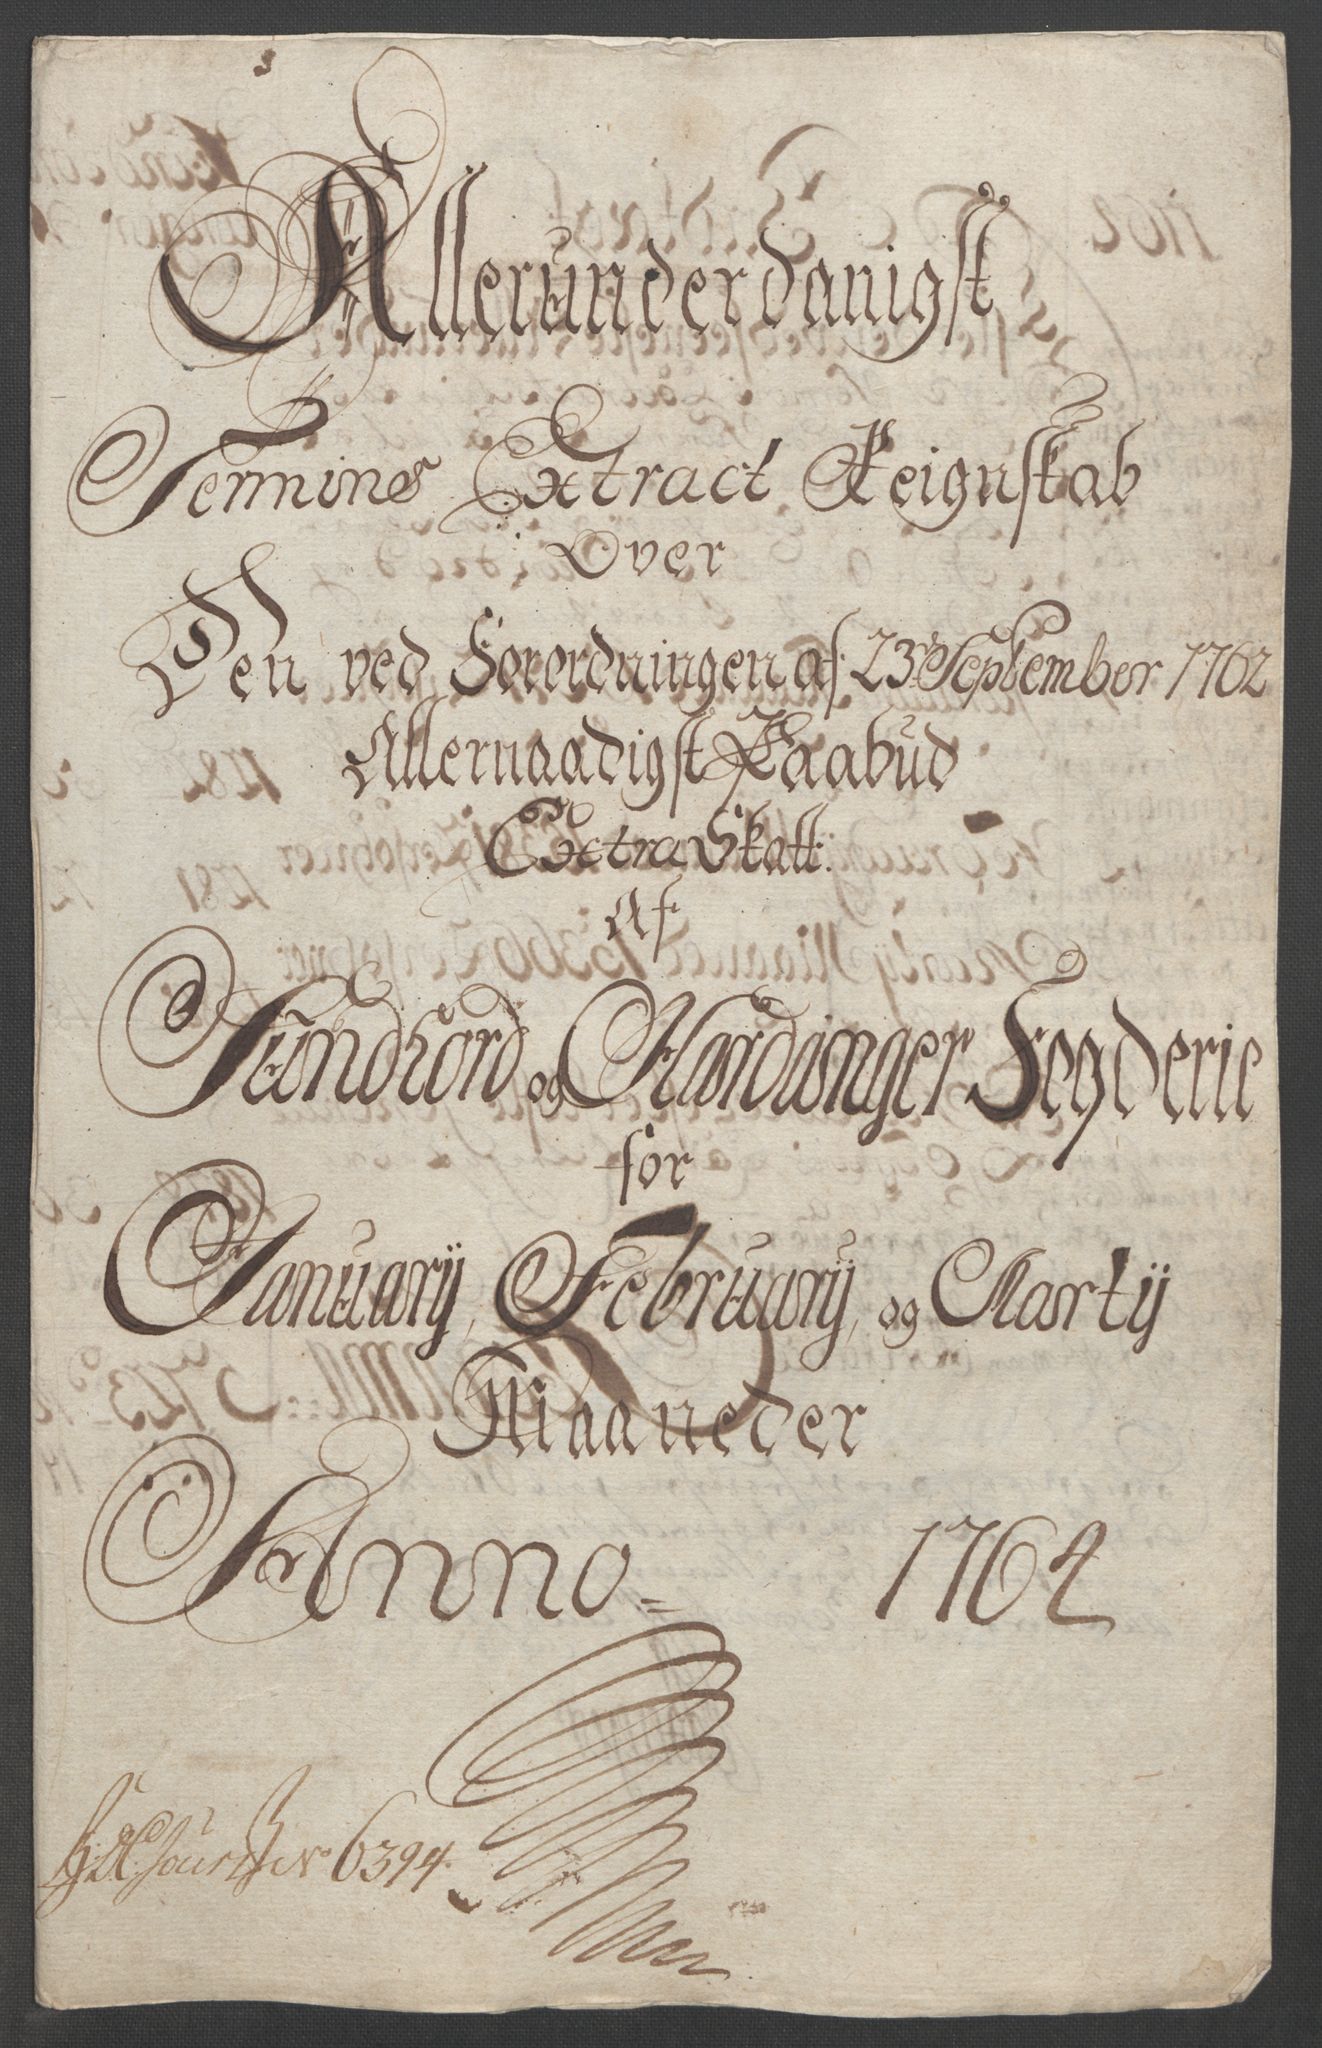 Allerunderdanigst
Termines Extract Reignskab
Over
Den ved Forordningen af 23de September 1762
Allernaadigst Paabud
Extra Skatt
Af
Sundhord og Hardanger Fogderie
for
Januarij, Februarij, og Martij
Maaneder
Anno 1764
No 6394